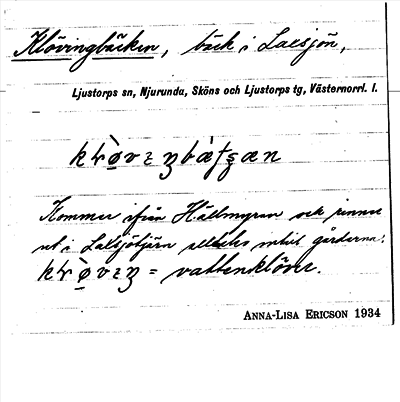 Klövingbäcken, bäck i Laesjön,
Ljustorps sn, Njurunda, Sköns och Ljustorps tg, Västernorrl. l.
Kommer ifrån Hällmyran och rinner
ut i Laesjötjärn alldeles intill gårdarna.
= vattenklöver.
ANNA-LISA ERICSON 1934